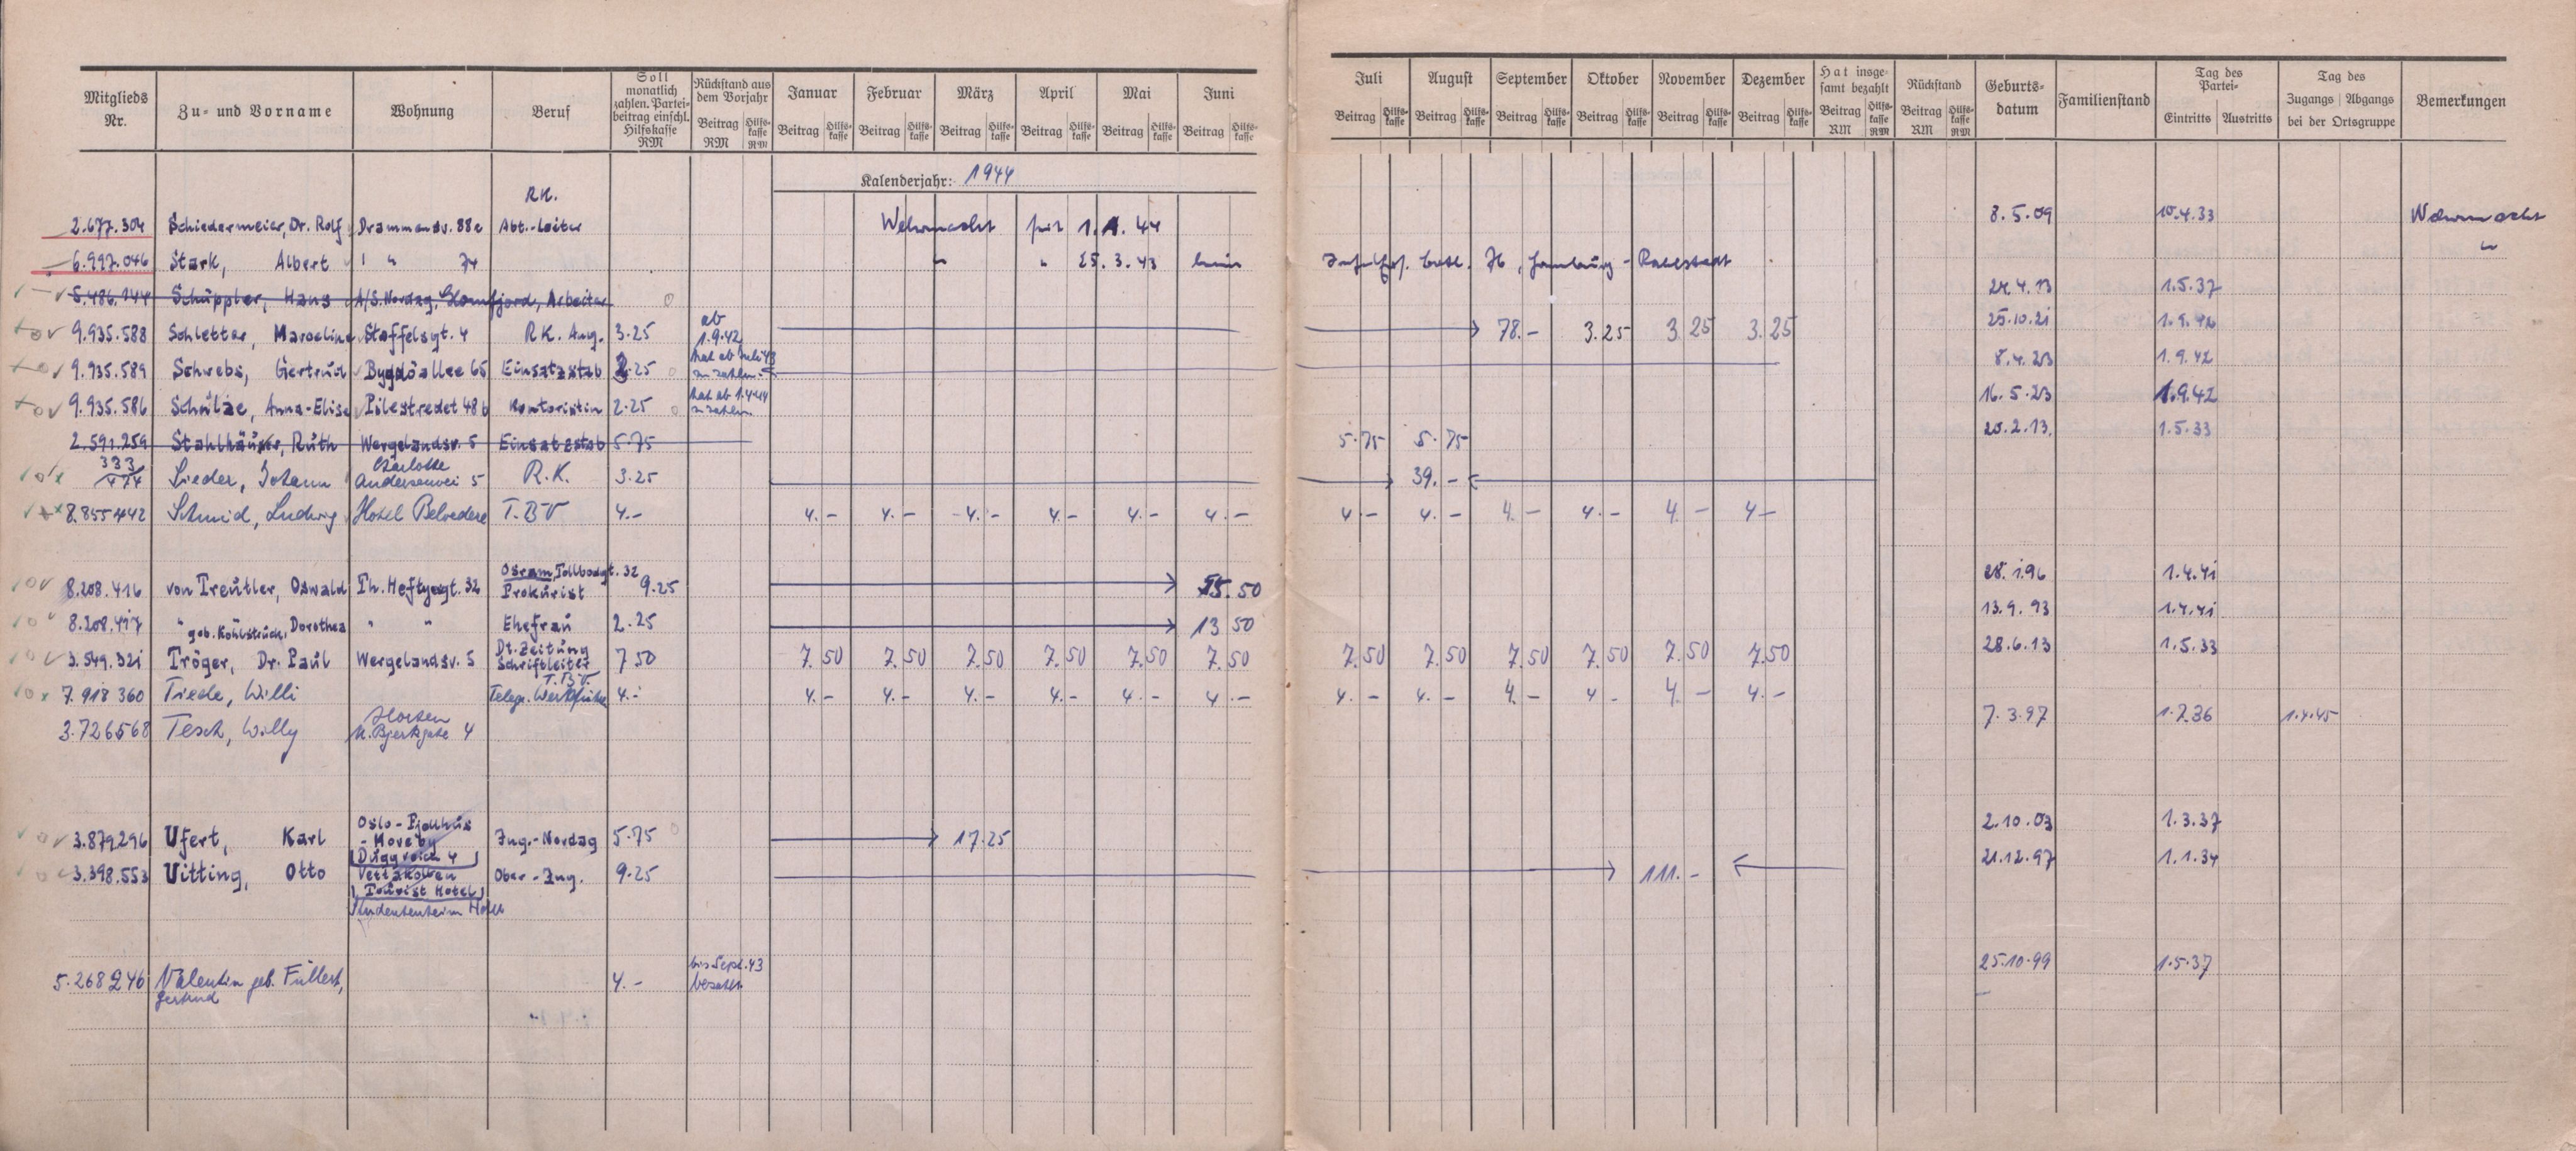 Mitglieds Nr. | Zu- und Vorname | Wohnung | Beruf | Soll monatlich zahlen. Parteibeitrag einschl. Hilfskasse RM | Rückstand aus dem Vorjahr Beitrag RM Hilfskasse RM | Januar Beitrag Hilfskasse | Februar Beitrag Hilfskasse | März Beitrag Hilfskasse | April Beitrag Hilfskasse | Mai Beitrag Hilfskasse | Juni Beitrag Hilfskasse | Juli Beitrag Hilfskasse | August Beitrag Hilfskasse | September Beitrag Hilfskasse | Oktober Beitrag Hilfskasse | November Beitrag Hilfskasse | Dezember Beitrag Hilfskasse | Hat insgesamt bezahlt Beitrag RM Hilfskasse RM | Rückstand Beitrag RM Hilfskasse RM | Geburtsdatum | Familienstand | Tag des Partei- Eintritts Austritts | Tag des Zugangs Abgangs bei der Ortsgruppe | Bemerkungen
Kalenderjahr: 1944
RK.
2.677.304 Schiedermeier, Dr. Rolf Drammensv. 88e Abt.-Leiter Wehrmacht seit 1.1.44 8.5.09 10.4.33 Wehrmacht
6.997.046 Stark, Albert " 74 " " 25.3.43 Hamburg-Rahlstedt "
5.486.144 Schüppler, Hans A/S. Nordag, Glomfjord, Arbeiter 24.4.13 1.5.37
9.935.588 Schletter, Marceline Staffelsgt. 4 R.K. Ang. 3.25 ab 1.9.42 78.- 3.25 3.25 3.25 25.10.21 1.9.42
9.935.589 Schrebs, Gertrud Bygdöallee 65 Einsatzstab 2.25 hat ab Juli 43 zu zahlen 8.4.23 1.9.42
9.935.586 Schülze, Anna-Elise Pilestredet 48b Kontoristin 2.25 hat ab 1.4.44 zu zahlen 16.5.23 1.9.42
2.591.259 Stahlhäuser, Ruth Wergelandsv. 5 Einsatzstab 5.75 5.75 5.75 20.2.13. 1.5.33
333/474 Sieder, Johann Charlotte Andersenvei 5 R.K. 3.25 39.-
8.855442 Schmid, Ludwig Hotel Belvedere T.B.V 4.- 4.- 4.- 4.- 4.- 4.- 4.- 4.- 4.- 4.- 4.- 4.- 4-
8.208.416 von Treütler, Oswald Th. Heftyesgt. 32 Osram, Tollbodgt. 32 Prokürist 9.25 55.50 28.1.96 1.4.41
8.208.417 " geb. Kohlstrück, Dorothea " " Ehefraü 2.25 13 50 13.9.93 1.4.41
3.549.321 Tröger, Dr. Paul Wergelandsv. 5 Dt. Zeitüng Schriftleiter 7 50 7.50 7.50 7.50 7.50 7.50 7.50 7.50 7.50 7.50 7.50 7.50 7.50 28.6.13 1.5.33
7.918 360 Tiede, Willi T.B.V. Telegr. Werkführer 4.- 4.- 4.- 4.- 4.- 4.- 4.- 4.- 4.- 4.- 4- 4.- 4.-
3.726568 Tesch, Willy Horten 4 7.3.97 1.7.36 1.4.45
3.879.296 Ufert, Karl Oslo- Düggveien 4 Ing.-Nordag 5.75 17.25 2.10.03 1.3.37
3.398.553 Uitting, Otto Vettakollen Toürist Hotel Ober-Ing. 9.25 111.- 21.12.97 1.1.34
Studentenheim
5.268246 Valentin geb. Füllert, Gertrud 4.- bis Sept. 43 bezahlt 25.10.99 1.5.37